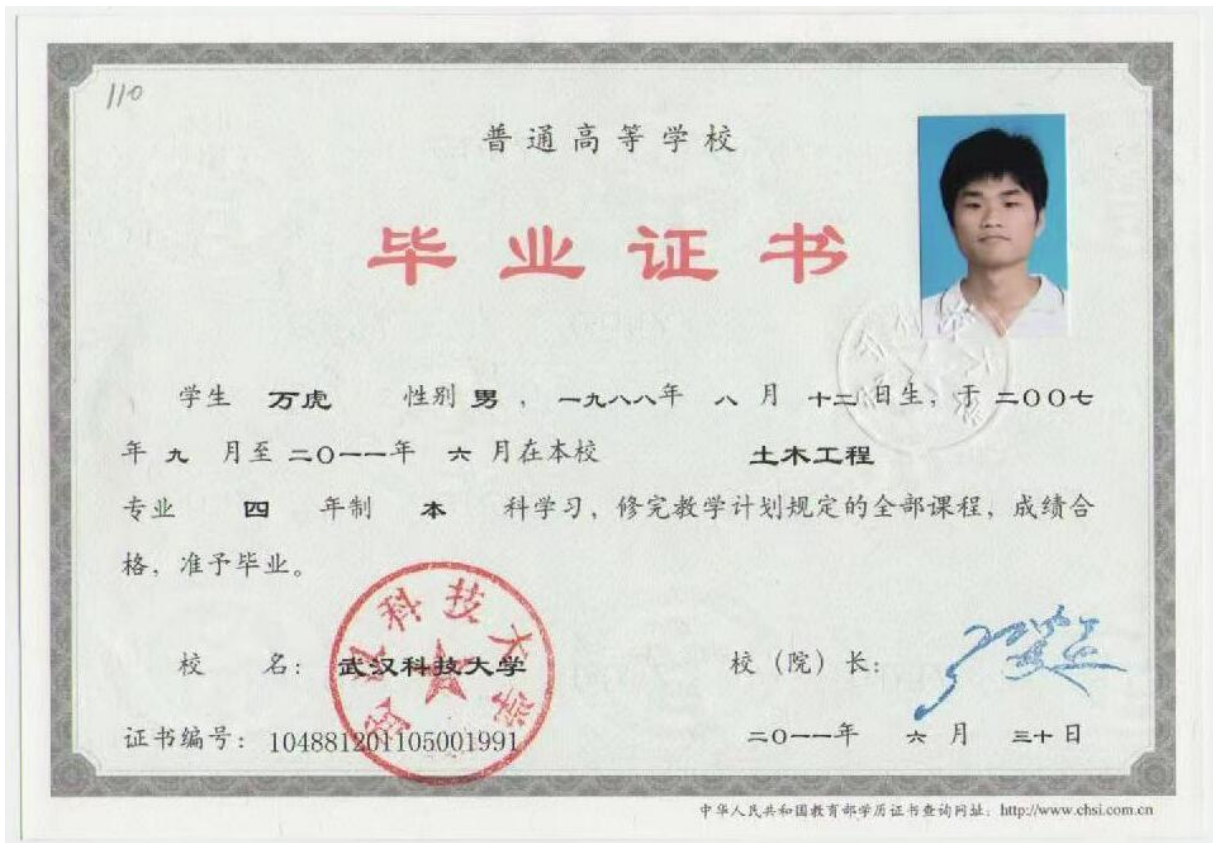 110
普通高等学校
毕业证书
学生 万虎 性别 男 ，一九八八年 八 月 十二 日生，于 二００七
年 九 月至 二０一一年 六 月在本校 土木工程
专业 四 年制 本 科学习，修完教学计划规定的全部课程，成绩合
格，准予毕业。
武汉科技大学
校 名： 武汉科技大学 校（院）长：
证书编号：104881201105001991 二０一一年 六 月 三十日
中华人民共和国教育部学历证书查询网址：http://www.chsi.com.cn